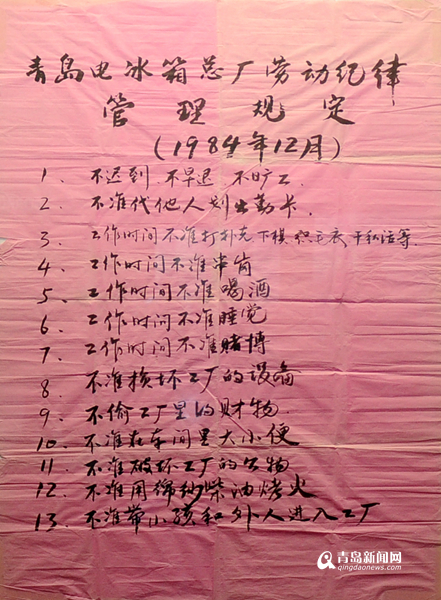 青岛电冰箱总厂劳动纪律
管理规定
(1984年12月)
1. 不迟到 不早退 不旷工.
2. 不准代他人划出勤卡.
3. 工作时间不准打扑克下棋织毛衣干私活等.
4. 工作时间不准串岗
5. 工作时间不准喝酒
6. 工作时间不准睡觉
7. 工作时间不准赌博
8. 不准损坏工厂的设备
9. 不偷工厂里的财物.
10. 不准在车间里大小便
11. 不准破坏工厂的公物
12. 不准用棉纱柴油烤火
13. 不准带小孩和外人进入工厂
青岛新闻网
qingdaonews.com